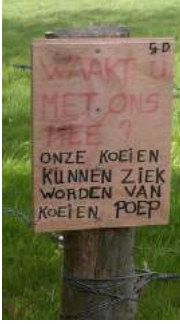 GD
WAAKT U
MET ONS
MEE?
ONZE KOEIEN
KUNNEN ZIEK
WORDEN VAN
KOEIEN POEP